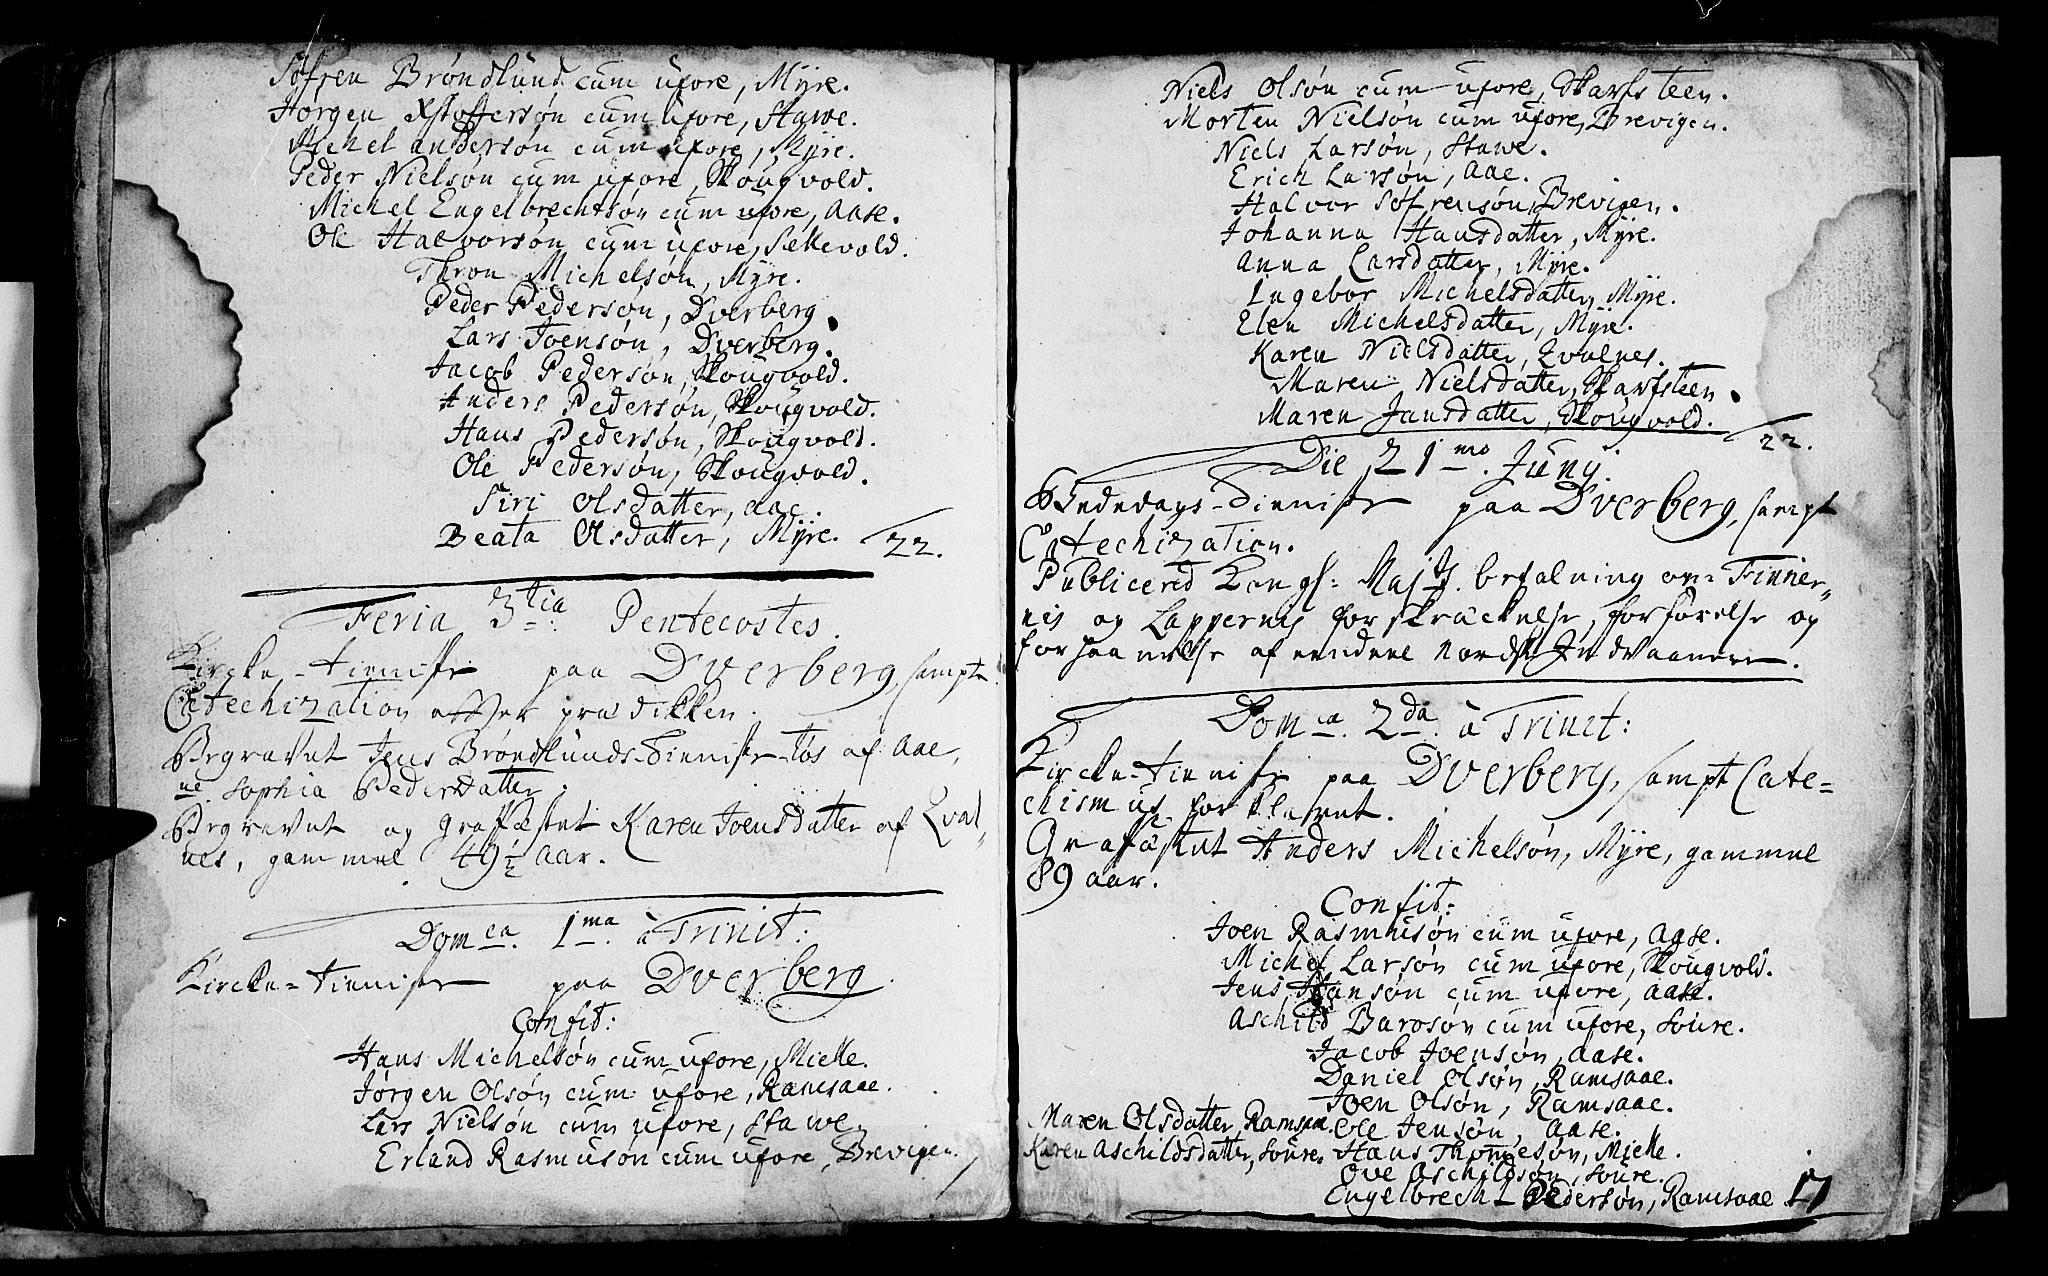 Søfren Brøndlund cum uxore, Myre.
Jørgen Xstoffersøn cum uxore, Stawe.
Michel andersøn cum uxore, Myre.
Peder Nielsøn cum uxore, Skougvold.
Michel Engelbrechtsøn cum uxore, Aase.
Ole Halvorsøn cum uxore, Sellevold.
Thron Michelsøn, Myre.
Peder Pedersøn, Dverberg.
Lars Joensøn, Dverberg.
Jacob Pedersøn, Skougvold.
Anders Pedersøn, Skougvold.
Hans Pedersøn, Skougvold.
Ole Pedersøn, Skougvold.
Siri Olsdatter, aae.
Beata Olsdatter, Myre. 22.
Feria 3tia Pentecostes.
Kircke-tieniste paa Dverberg, sampt
Catechization effter prædikken.
Begravet Jens Brøndlunds Tieniste-tøs af Aae,
ne. Sophia Pedersdatter.
Begravet og graffæstet Karen Joensdatter af Qval-
nes, gammel 49 1/2 aar.
Domca. 1ma. à Trinit:
Kircke-tieniste paa Dverberg.
Confit:
Hans Michelsøn cum uxore, Mielle.
Jørgen Olsøn cum uxore, Ramsaae.
Lars Nielsøn cum uxore, Stawe.
Erland Rasmusøn cum uxore, Brevigen.
Niels Olsøn cum uxore, Skarfsteen.
Morten Nielsøn cum uxore, Brevigen.
Niels Larsøn, Stawe.
Erich Larsøn, Aae.
Halvor Søfrensøn, Brevigen.
Johanna Hansdatter, Myre.
Anna Larsdatter, Myre.
Ingebor Michelsdatter, Myre.
Elen Michelsdatter, Myre.
Karen Nielsdatter, Qvalnes.
Maren Nielsdatter, Skarfsteen.
Maren Jansdatter, Skougvold. 22.
Die 21mo. Juny.
Bededags-Tieniste paa Dverberg, sampt
Catechization.
Publicered Kongl: Majts. befalning om Finner-
nis og Lappernis forskräckelse, forførelse og
forhaanelse af eendeel Nordsk Indvaanere.
Domca. 2da. à Trinit:
Kircke-tieniste paa Dverberg, sampt Cate=
chismus forklaret.
Grafästet Anders Michelsøn, Myre, gammel
89 aar.
Confit:
Joen Rasmusøn cum uxore, Aase.
Michel Larsøn cum uxore, Skougvold.
Jens Hansøn cum uxore, Aase.
Aschild Barosøn cum uxore, Soure.
Jacob Joensøn, Aase.
Daniel Olsøn, Ramsaae.
Joen Olsøn, Ramsaae.
Maren Olsdatter, Ramsaa. Ole Jensøn, Aase.
Karen Aschildsdatter, Soure. Hans Thomesøn, Mielle.
Ove Aschildsøn, Soure.
Engelbrecht Pedersøn, Ramsaae. 17